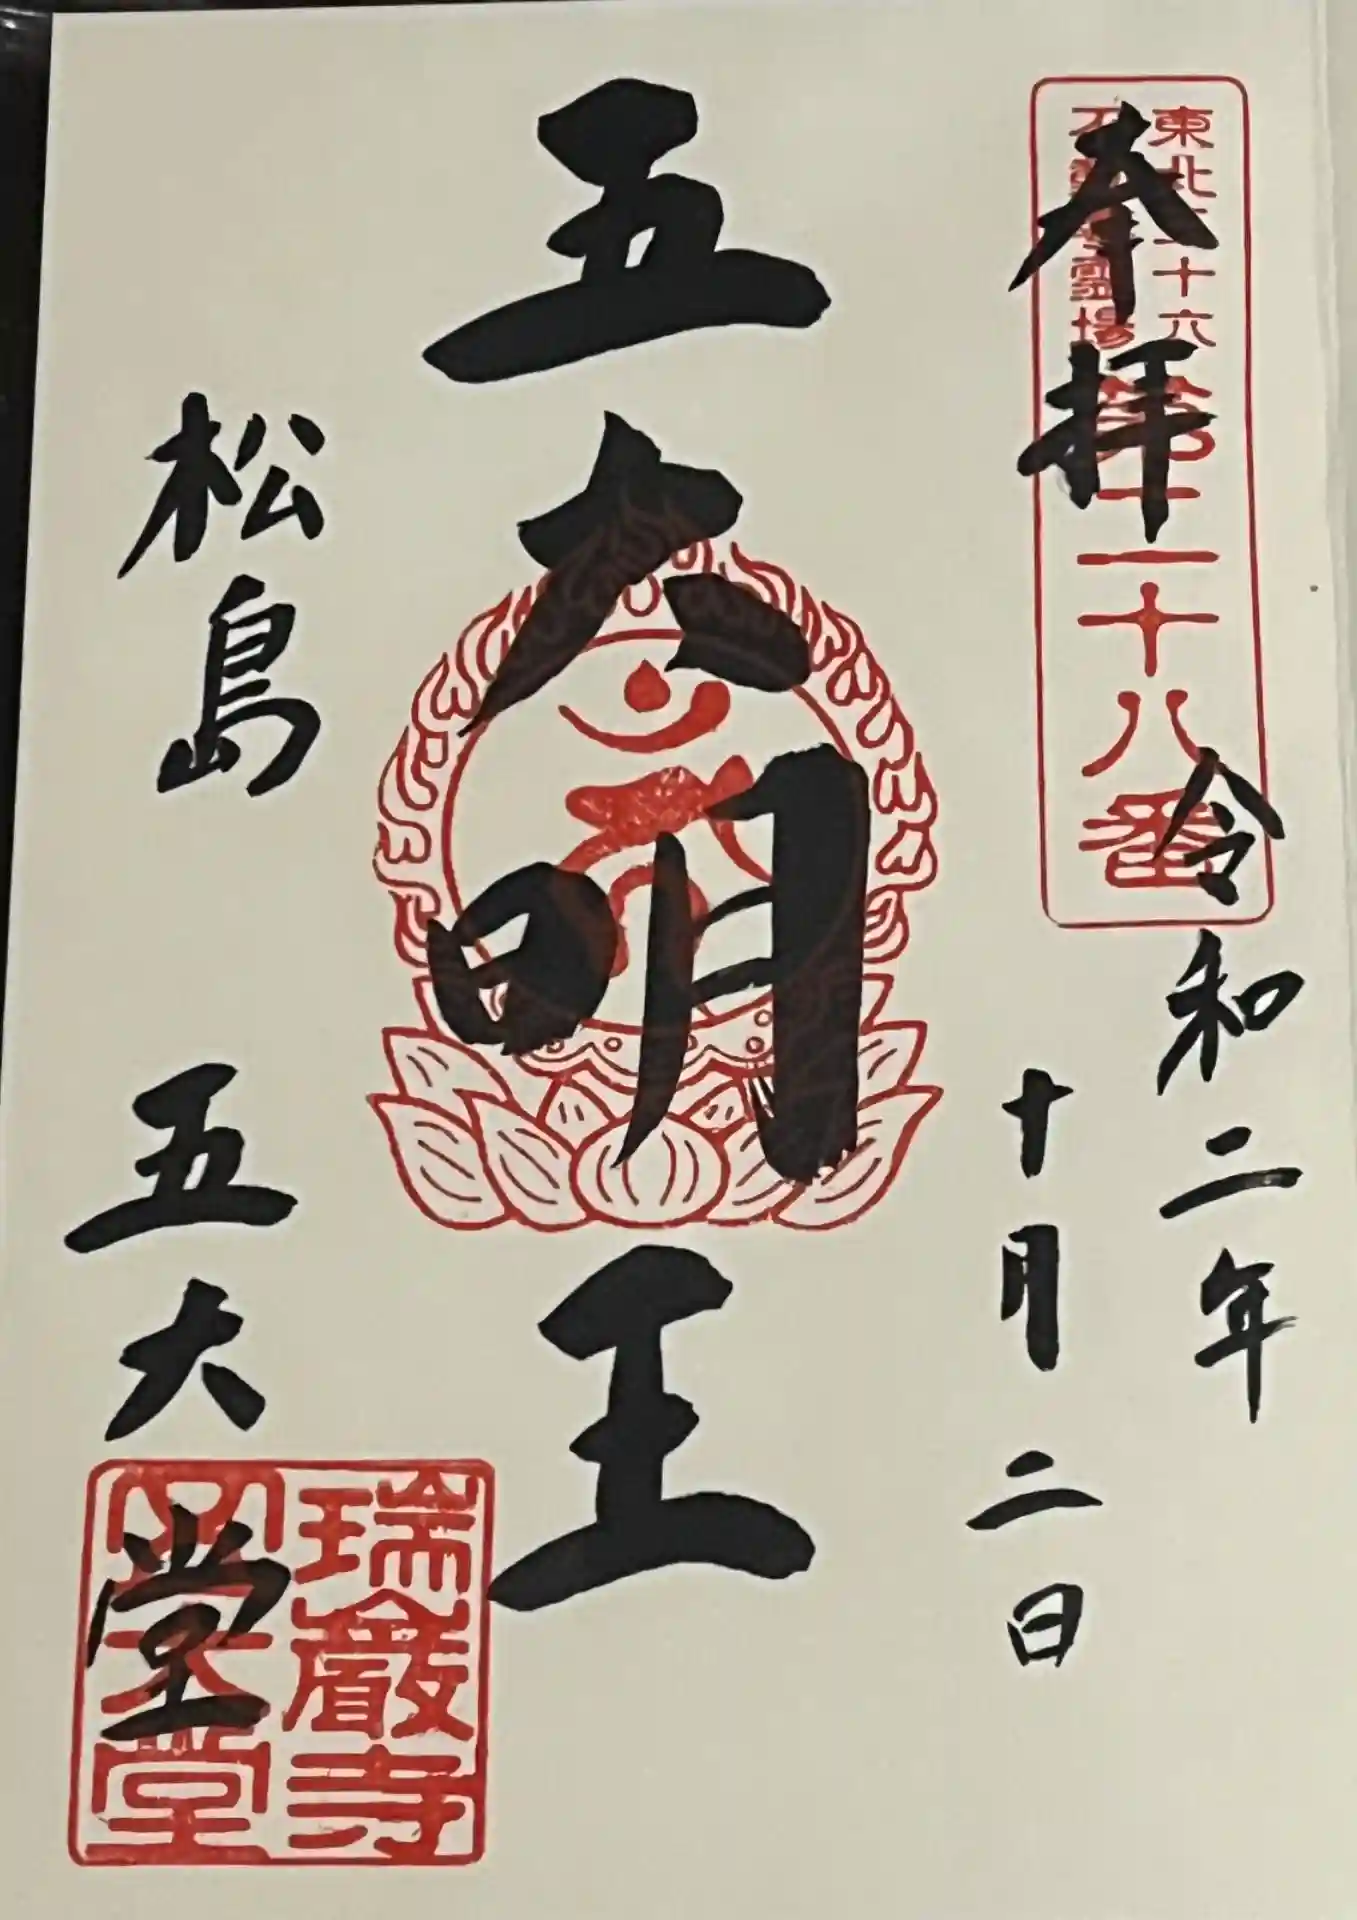 奉拝
東北三十六
不動尊霊場
第二十八番
令和二年
十月二日
五大明王
松島
五大堂
瑞巖寺
五大堂